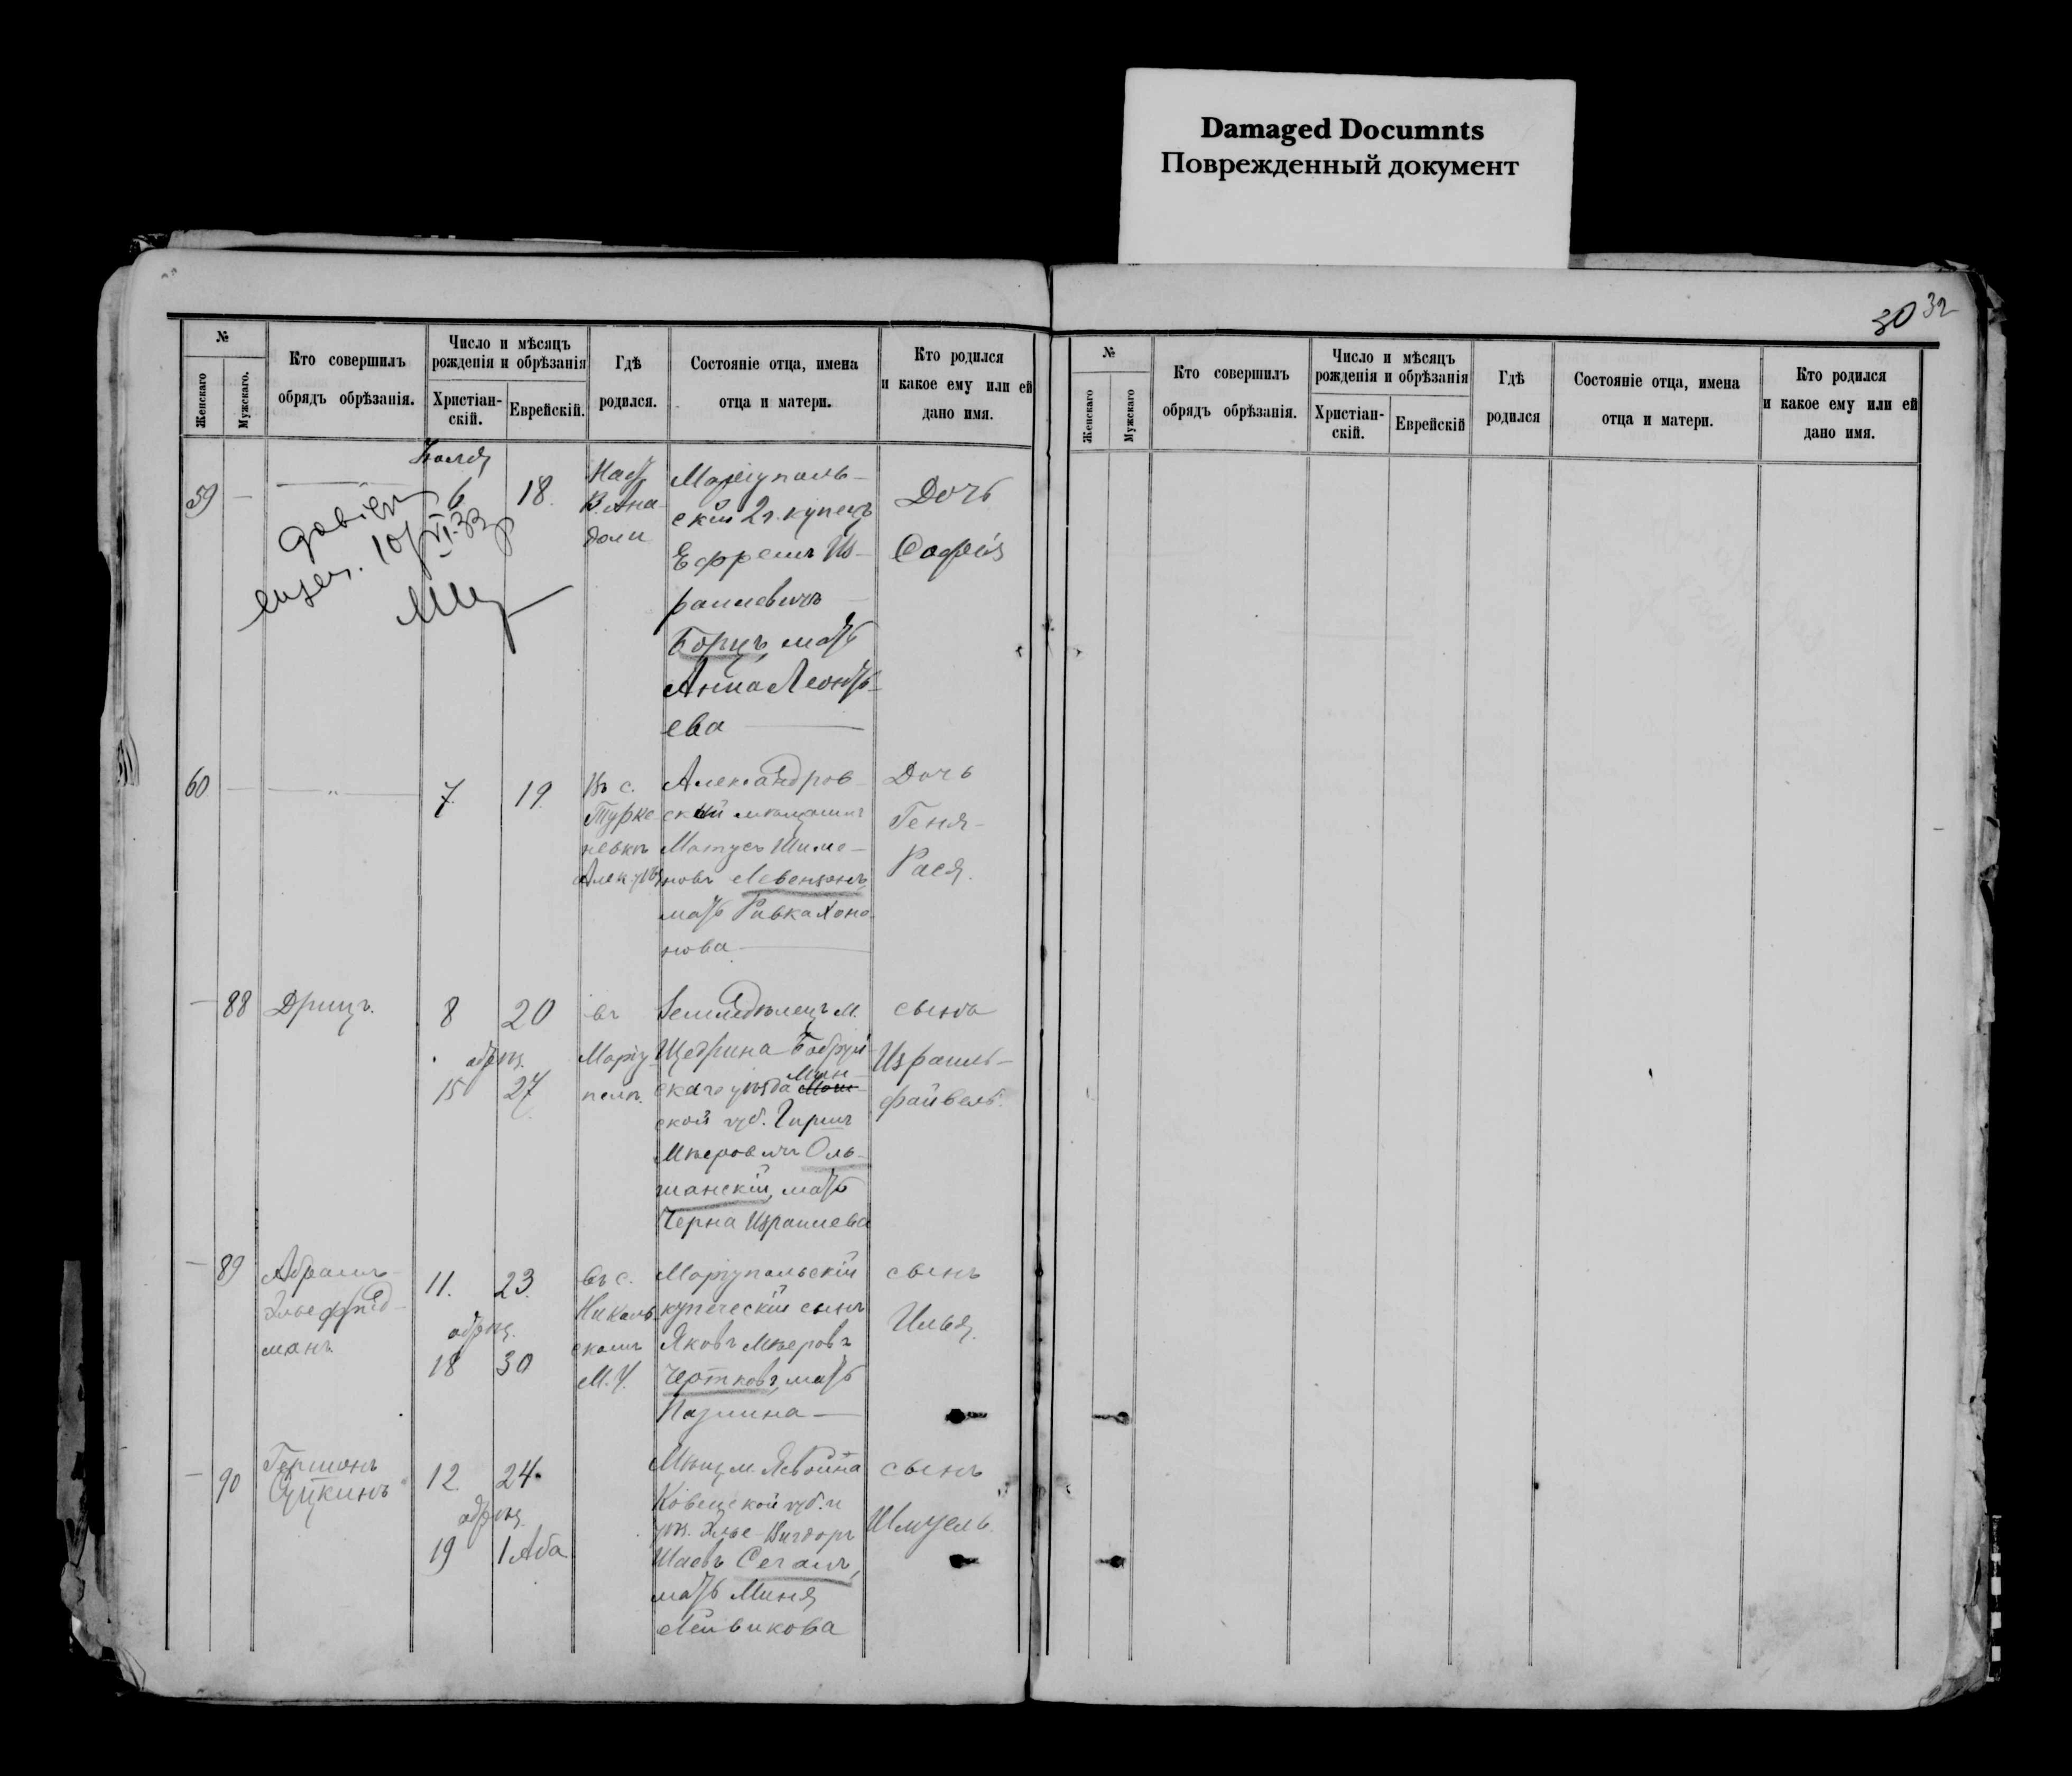 Damaged Documnts
Поврежденный документ
30 32
№
Женскаго
Мужскаго.
Кто совершилъ
обрядъ обрѣзанія.
Число и мѣсяцъ
рожденія и обрѣзанія
Христіан-
скій.
Еврейскій.
Гдѣ
родился.
Состояніе отца, имена
отца и матери.
Кто родился
и какое ему или ей
дано имя.
59
6
18.
В. Ана-
доли
Маріуполь-
скій 2 г. купецъ
Ефремъ Из-
раилевичъ
Борцъ, мать
Анна Леонть-
ева
Дочь
Софія
60
7.
19
Въ с.
Турке
невкѣ
Александров
скій мѣщанинъ
Матусъ Шимо-
новъ Левензонъ,
мать Ривка Хоно-
нова
Дочь
Геня-
Рася.
88
Дрицъ.
8
20
обрѣз.
15
27
въ
Маріу-
полѣ.
Земледѣлецъ м.
Щедрина Бобруй-
скаго уѣзда Мин-
ской губ. Гиршъ
Мѣеровичъ Оль-
шанскій, мать
Черна Израилева
сынъ
Израиль-
Файвель.
89
Абрамъ-
Элье Фрид-
манъ.
11.
23.
обрѣз.
18
30
въ с.
Николь-
скомъ
М. У.
Маріупольскій
купеческій сынъ
Яковъ Мѣеровъ
Чертковъ, мать
сынъ
Илья.
90
Гершонъ
Суцкинъ
12.
24.
обрѣз.
19
1 Аба
Мѣщ. м. Явойна
Ковенской губ. и
уѣз. Элье-Вигдоръ
Сегалъ,
мать Миня
Лейвикова
сынъ
Шмуель.
№
Женскаго
Мужскаго
Кто совершилъ
обрядъ обрѣзанія.
Число и мѣсяцъ
рожденія и обрѣзанія
Христіан-
скій.
Еврейскій
Гдѣ
родился
Состояніе отца, имена
отца и матери.
Кто родился
и какое ему или ей
дано имя.